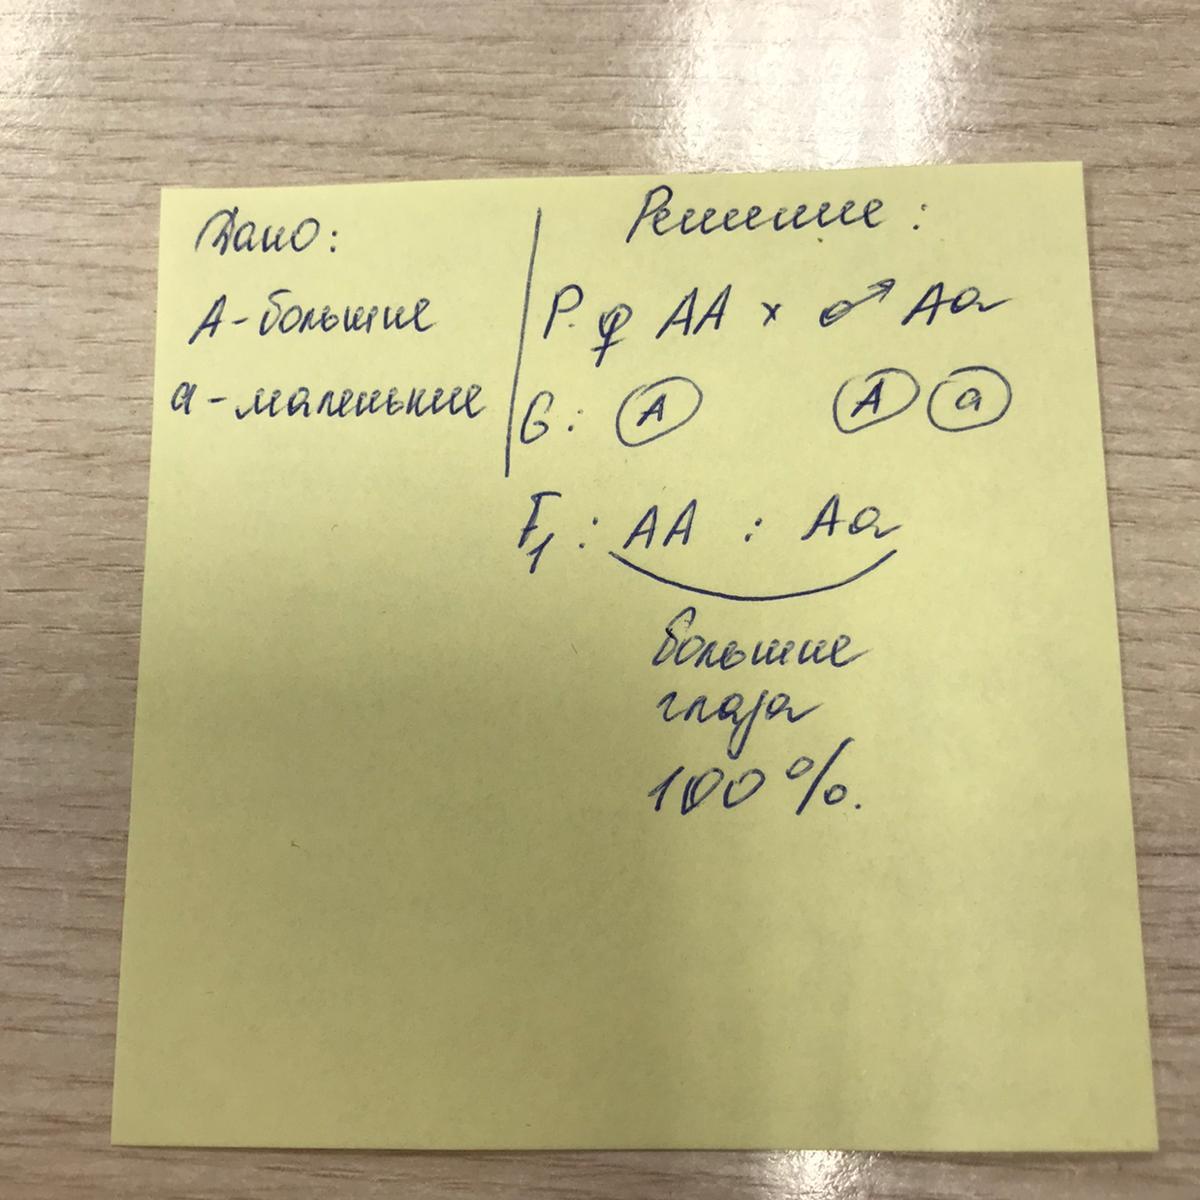 Дано:
А - большие
а - маленькие
Решение:
P. ♀ АА × ♂ Аа
G: А А а
F1: АА : Аа
большие
глаза
100%.